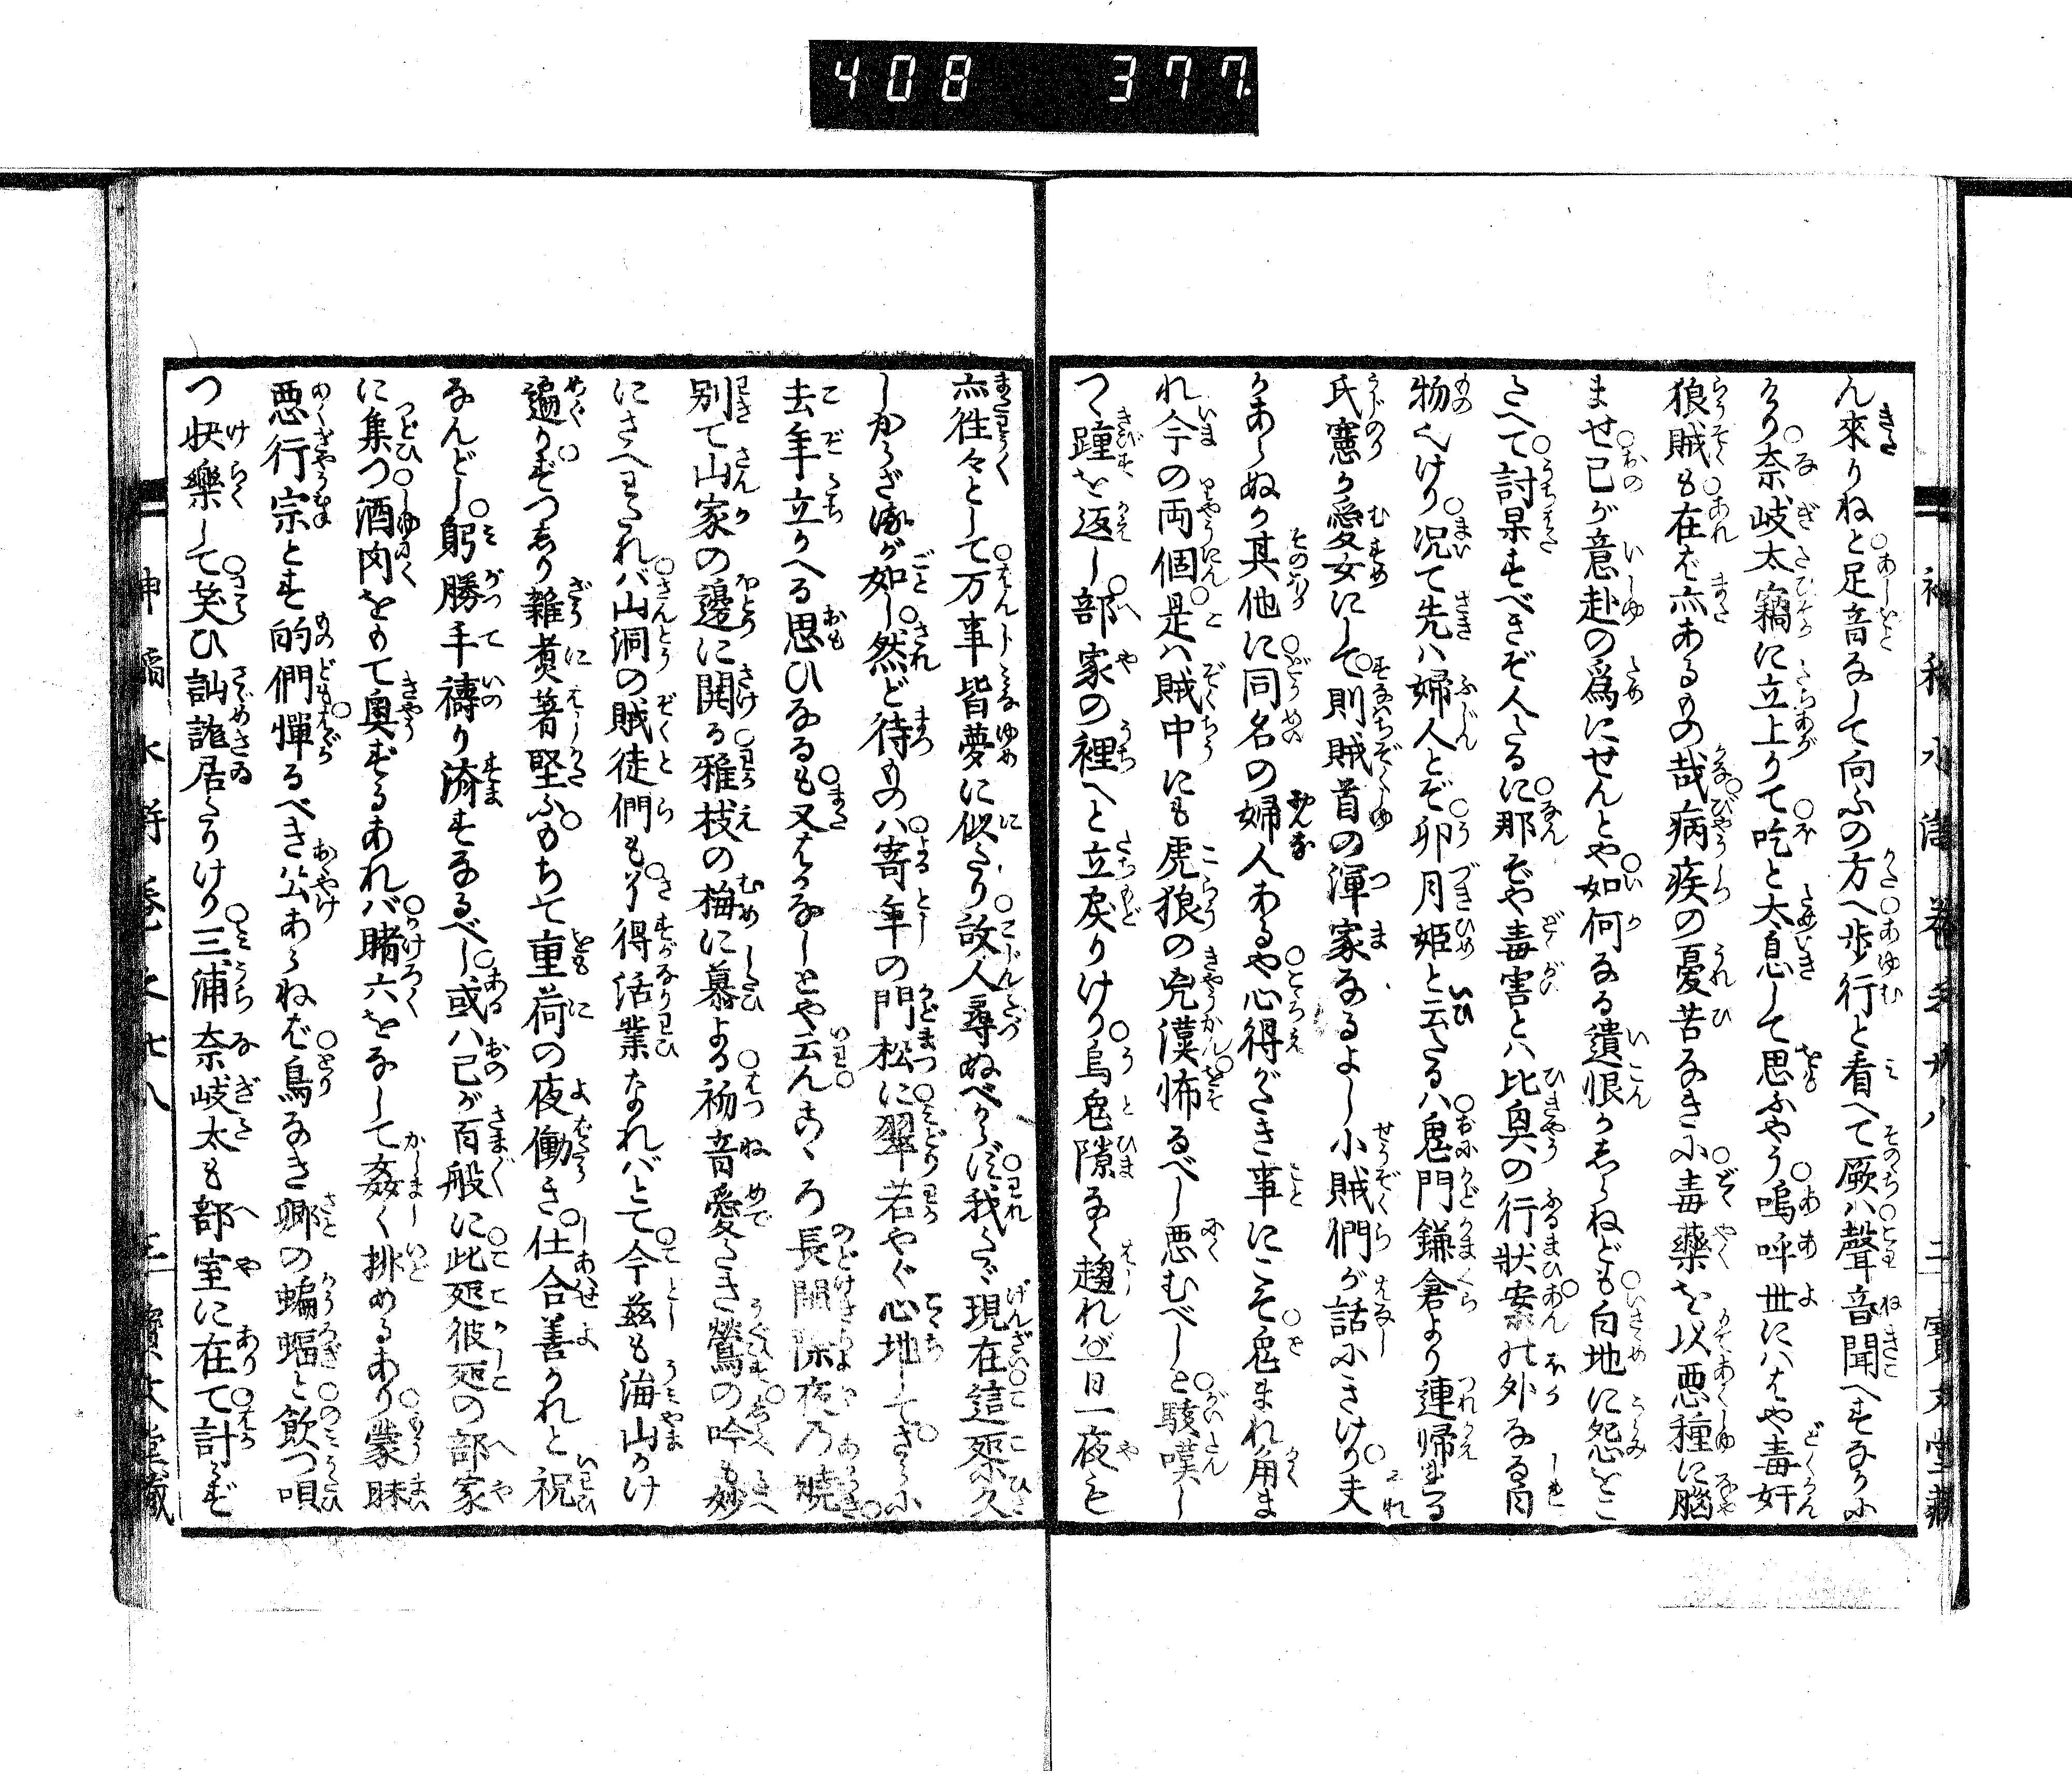 408 377.
ん來りねと足音なして向ふの方へ歩行と看へて厥ハ聲音聞へずなりふ
けり奈岐太竊に立上りて吃と太息して思ふやう嗚呼世にハはや毒奸
狼賊も在ば亦あるもの哉病疾の憂苦なきふ毒藥を以悪種に腦
ませ己が意赴の爲にせんとや如何なる遺恨かあらねども白地に怨をこ
さへて討果すべきぞ人たるに那ぞや毒害とハ比興の行状案外なる自
物しけり况て先ハ婦人とぞ卯月姫と云たるハ鬼門鎌倉より連帰まる
氏憲が愛女にして則賊首の渾家なるよし小賊們が話ふきけり夫
かあらぬか其他に同名の婦人あるや心得がたき事にこそ鬼まれ角ま
れ今の両個是ハ賊中にも虎狼の兇漢怖るべし悪むべしと駭嘆し
つゝ踵を返し部家の裡へと立戻りけり烏兎隙なく趨れバ一日一夜も
亦徃々として万事皆夢に似たり故人尋ぬべからず我さへ現在這処ふ久
しからざるが如し然ど待ものハ寄年の門松に翠若やぐ心地してさらふ
去年立かへる思ひなるも又はかなしとや云んころ長閑除夜乃曉
別て山家の邊に開る雅枝の梅に慕よる初音愛たき鶯の吟も妙
にさへわたれバ山洞の賊徒們もさ得活業なれバとて今茲も海山かけ
遍りずつゑり雜煑箸堅ふもちて重荷の夜働き仕合善かれと祝
なんどし躬勝手禱り濟すなるべし或ハ己が百般に此処彼処の部家
に集つ酒肉をもて興ずるあれバ賭六をなして姦く挑めるあり蒙昧
悪行宗とす的們憚るべき公あらねば鳥なき郷の蝙蝠と飲つ唄
つ快樂して笑ひ訕誮居たりけり三浦奈岐太も部室に在て計らず